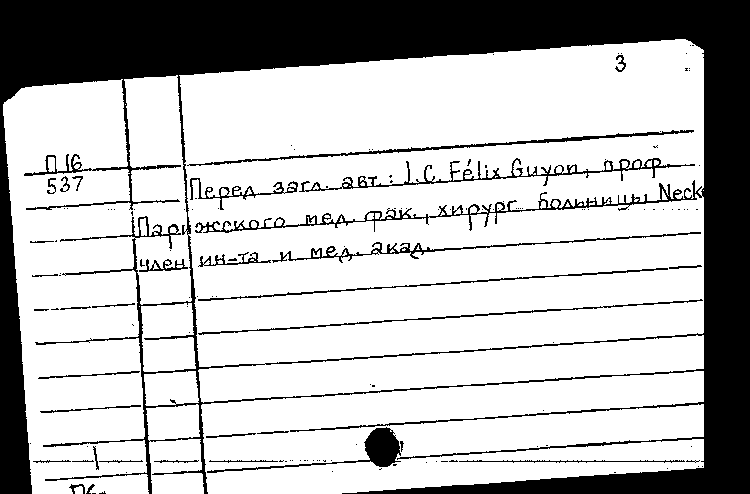 3
П 16
537
Перед загл. авт.: J.C. Félix Guyon, проф.
Парижского мед. фак., хирург больницы Neck
член ин-та и мед. акад.